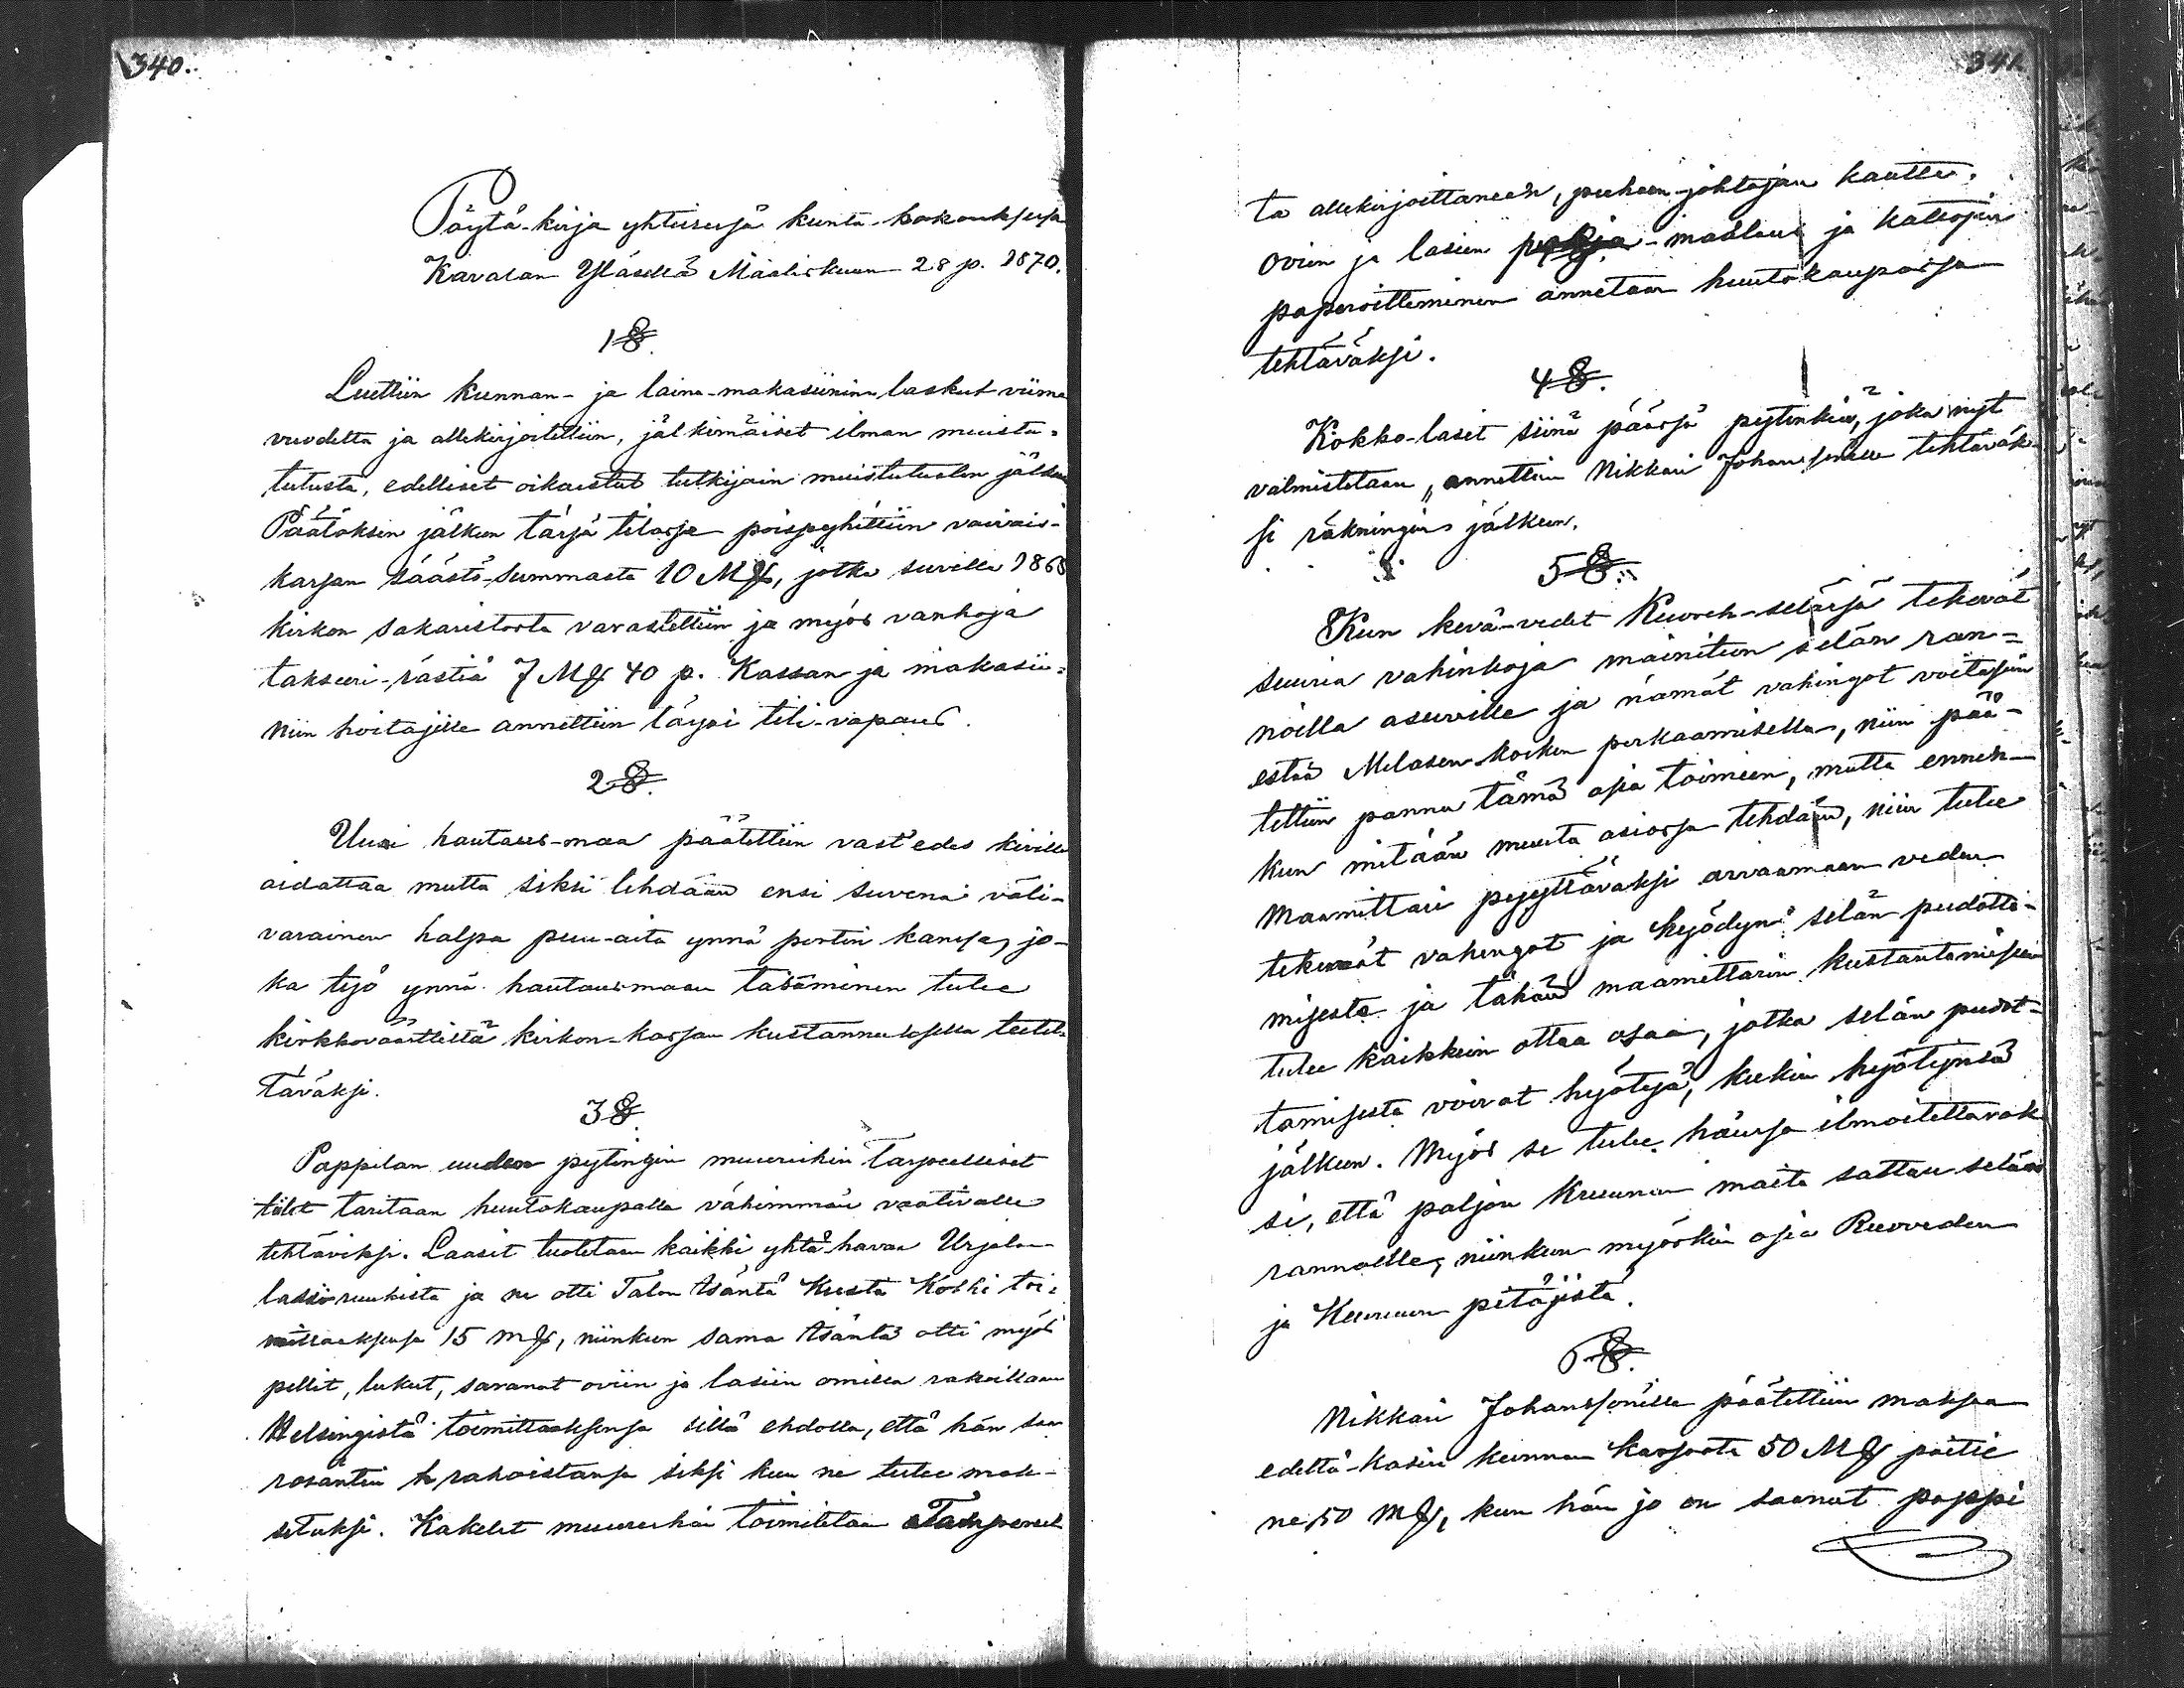 340.
Pöytä-kirja yhteisessä kunta-kokouksessa
Kavalan Yläsellä Maaliskuun 28 p. 1870.
1 §.
Luettiin kunnan- ja laina-makasiinin laskut viime
vuodelta ja allekirjoitettiin, jälkimäiset ilman muistu-
tutusta, edelliset oikaistut tutkijain muistutusten jälkeen
Päätöksen jälkeen tässä tilassa poispyhittiin vaivais-
kassan säästö-summasta 10 Mk, jotka suvella 1868
kirkon sakaristosta varastettiin ja myös vanhoja
takseeri-rästiä 7 Mk 40 p. Kassan ja makasii-
niin hoitajille annettiin täysi tili-vapaus.
2 §.
Uusi hautaus-maa päätettiin vast'edes kivillä
aidattaa mutta siksi tehdään ensi suvena väli-
varainen halpa puu-aita ynnä portin kanssa, jo-
ka työ ynnä hautausmaan tasaminen tulee
kirkkoväärtiltä kirkon-kassan kustannuksella teetet-
täväksi.
3 §.
Pappilan uuden pytingin muureihin tarpeelliset
tiilet taritaan huutokaupalla vähimmän vaativalle
tehtäviksi. Laasit tuotetaan kaikki yhtä havaa Urjalan
lassiruukista ja ne otti Talon Isäntä Kusta Koski toi-
mittaaksensa 15 mk, niinkuin sama Isäntä otti myös
pellit, lukut, saranat oviin ja lasiin omilla rahoillaan
Helsingistä toimittaaksensa sillä ehdolla, että hän saa
rosäntiä rahoistansa siksi kun ne tulee mak-
setuksi. Kakelit muureihin toimitetaan Tampereel
341.
ta allekirjoittaneen, puheen-johtajan kautta.
Ovien ja lasien -maalaus ja kattojen
paperoitteminen annetaan huutokaupassa
tehtäväksi.
4 §.
Kokko-lasit siinä päässä pytinkiä, joka nyt
valmistetaan, annettiin Nikkari Johanssonille tehtäväk-
si räkningin jälkeen.
5 §.
Kun kevä-vedet Kuoreh-selässä tekevät
suuria vahinkoja mainitun selän ran-
noilla asuville ja nämät vahingot voitasiin
estää Melasen-kosken perkaamisella, niin pää-
tettiin panna tämä asia toimeen, mutta ennen-
kun mitään muuta asiassa tehdään, niin tulee
Maamittari pyyttäväksi arvaamaan veden
tekemät vahingot ja hyödyn selän pudotta-
misesta ja tähän maamittarin kustantamiseen
tulee kaikkein ottaa osaa, jotka selän pudot-
tamisesta voivat hyötyä, kukin hyötynsä
jälkeen. Myös se tulee hänessä ilmoitettavak
si, että paljon Kruunun maita sattuu selän
rannoille, niinkuin myöskin osia Ruoveden
ja Keuruun pitäjistä.
6 §.
Nikkari Johanssonille päätettiin maksaa
edeltä-käsin kunnan kassasta 50 Mk paitsi
ne 50 mk, kun hän jo on saanut pappi